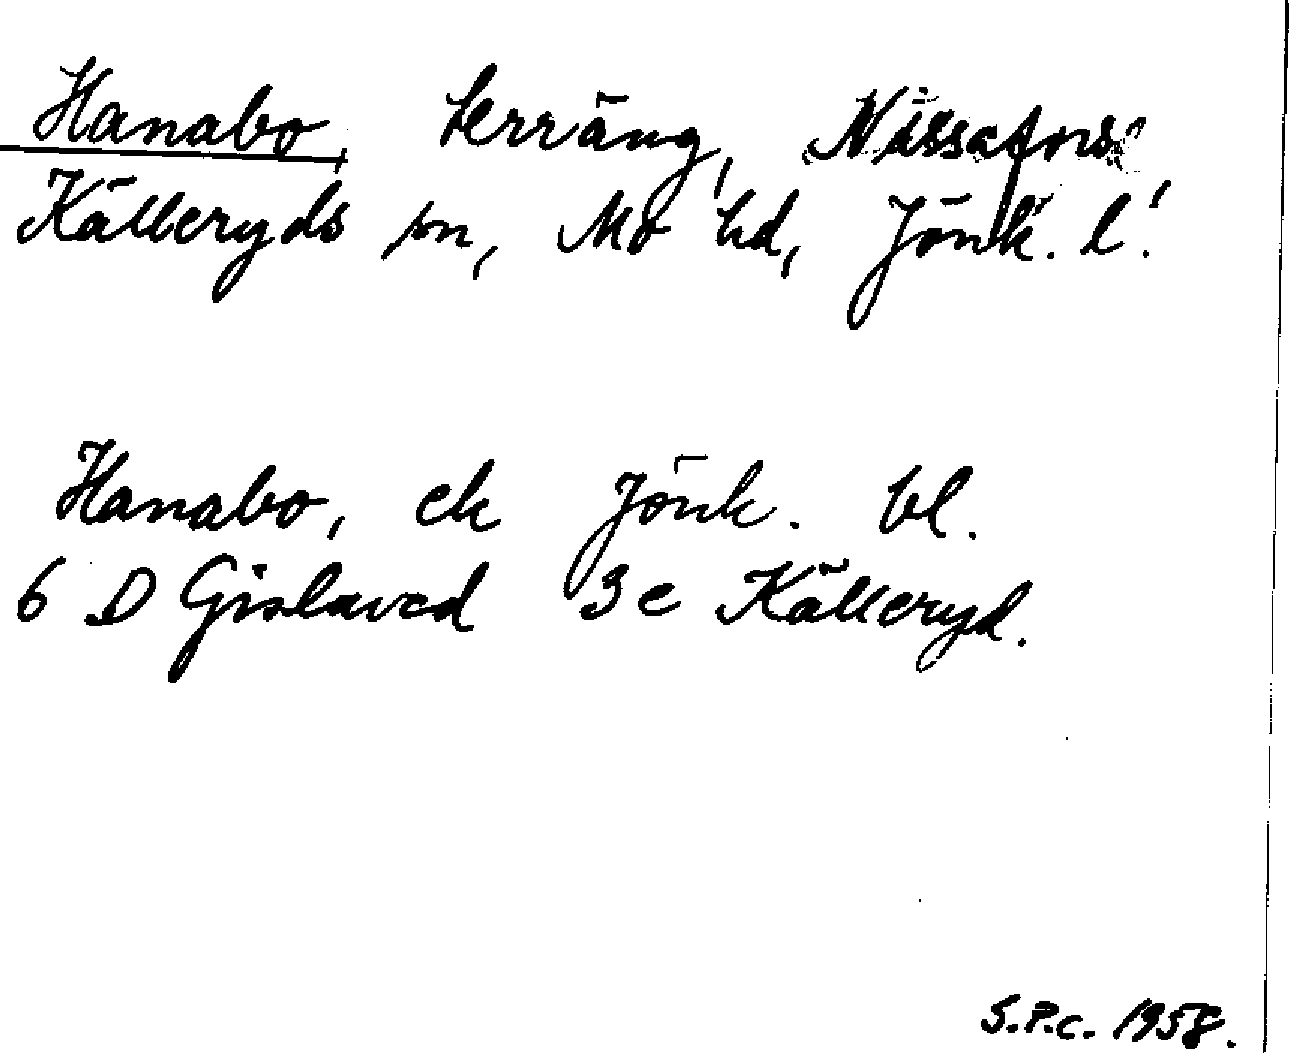 Hanabo, terräng, Nissafors
Källeryds sn, Mo hd, Jönk. l.
Hanabo, ek Jönk. bl.
6 D Gislaved 3 e Källeryd.
S.P.C. 1958.